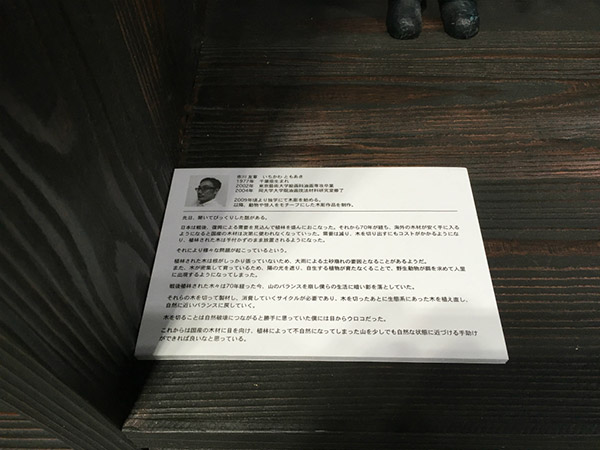 市川 友章 いちかわ ともあき
1977年 千葉県生まれ
2002年 東京藝術大学絵画科油画専攻卒業
2004年 同大学大学院油画技法材料研究室修了
2009年頃より独学にて木彫を始める。
以降、動物や怪人をモチーフにした木彫作品を制作。
先日、聞いてびっくりした話がある。
日本は戦後、復興による需要を見込んで植林を盛んにおこなった。それから70年が経ち、海外の木材が安く手に入る
ようになると国産の木材は次第に使われなくなっていった。需要は減り、木を切り出すにもコストがかかるようにな
り、植林された木は手付かずのまま放置されるようになった。
それにより様々な問題が起こっているという。
植林された木は根がしっかり張っていないため、大雨による土砂崩れの要因となることがあるようだ。
また、木が密集して育っているため、陽の光を遮り、自生する植物が育たなくることで、野生動物が餌を求めて人里
に出没するようになってしまった。
戦後植林された木々は70年経った今、山のバランスを崩し僕らの生活に暗い影を落としていた。
それらの木を切って製材し、消費していくサイクルが必要であり、木を切ったあとに生態系にあった木を植え直し、
自然に近いバランスに戻していく。
木を切ることは自然破壊につながると勝手に思っていた僕には目からウロコだった。
これからは国産の木材に目を向け、植林によって不自然になってしまった山を少しでも自然な状態に近づける手助け
ができれば良いなと思っている。